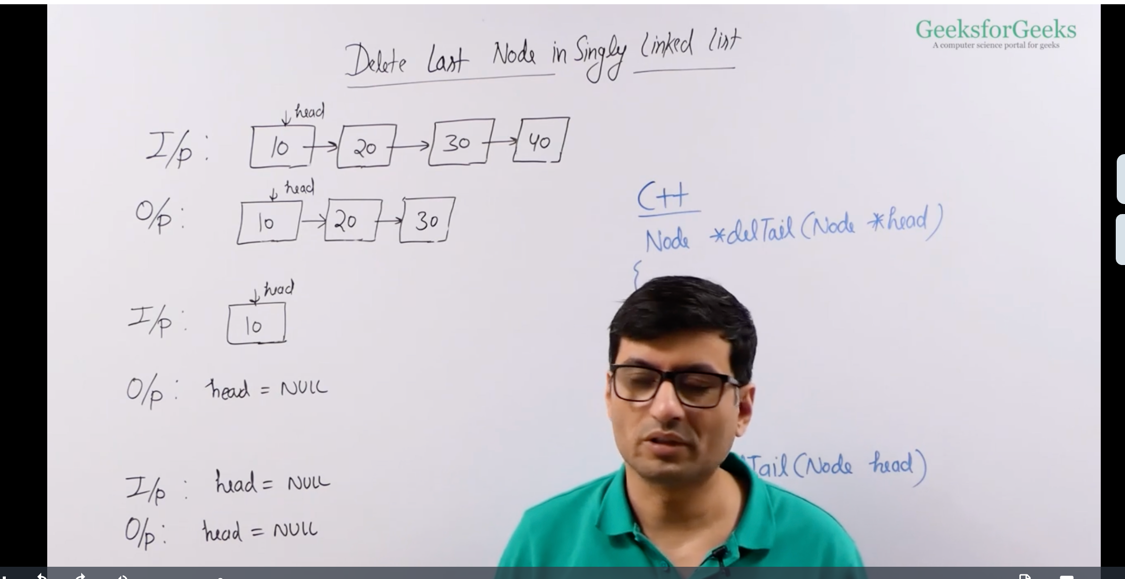 GeeksforGeeks
A computer science portal for geeks
Delete Last Node in Singly Linked list
head
I/p: 10 20 30 40
head
O/p: 10 20 30
head
I/p: 10
O/p: head = NULL
I/p: head = NULL
O/p: head = NULL
C++
Node *delTail(Node *head)
{
Tail(Node head)